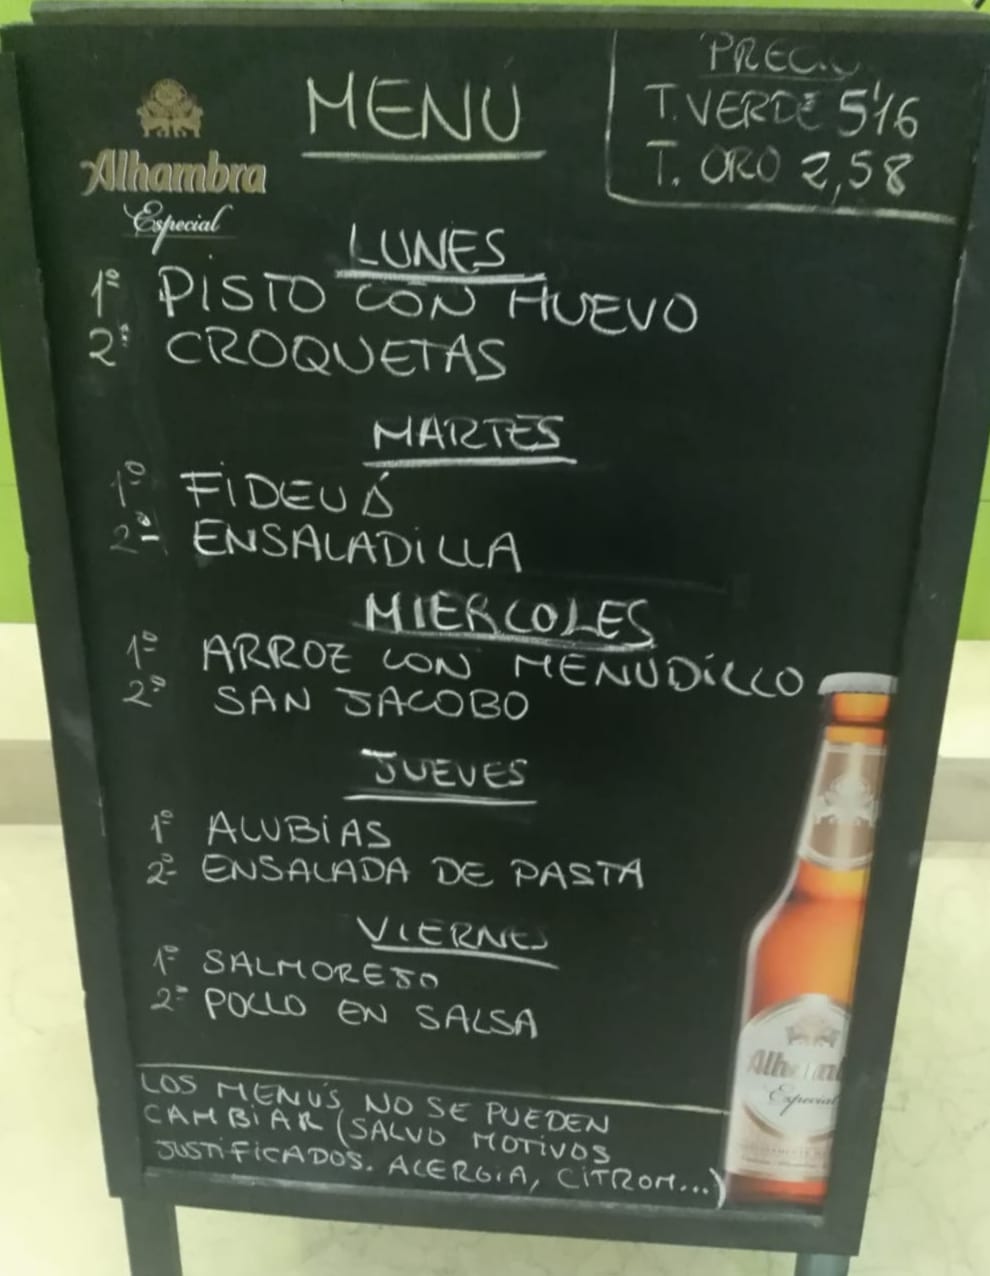 MENÚ
PRECIO
T. VERDE 5'16
T. ORO 2,58
Alhambra
Especial
LUNES
1º PISTO CON HUEVO
2º CROQUETAS
MARTES
1º FIDEUÁ
2º ENSALADILLA
MIERCOLES
1º ARROZ CON MENUDILLO
2º SAN JACOBO
JUEVES
1º ALUBIAS
2º ENSALADA DE PASTA
VIERNES
1º SALMOREJO
2º POLLO EN SALSA
LOS MENÚS NO SE PUEDEN
CAMBIAR (SALVO MOTIVOS
JUSTIFICADOS. ALERGIA, CITROM...)
Alhambra
Especial